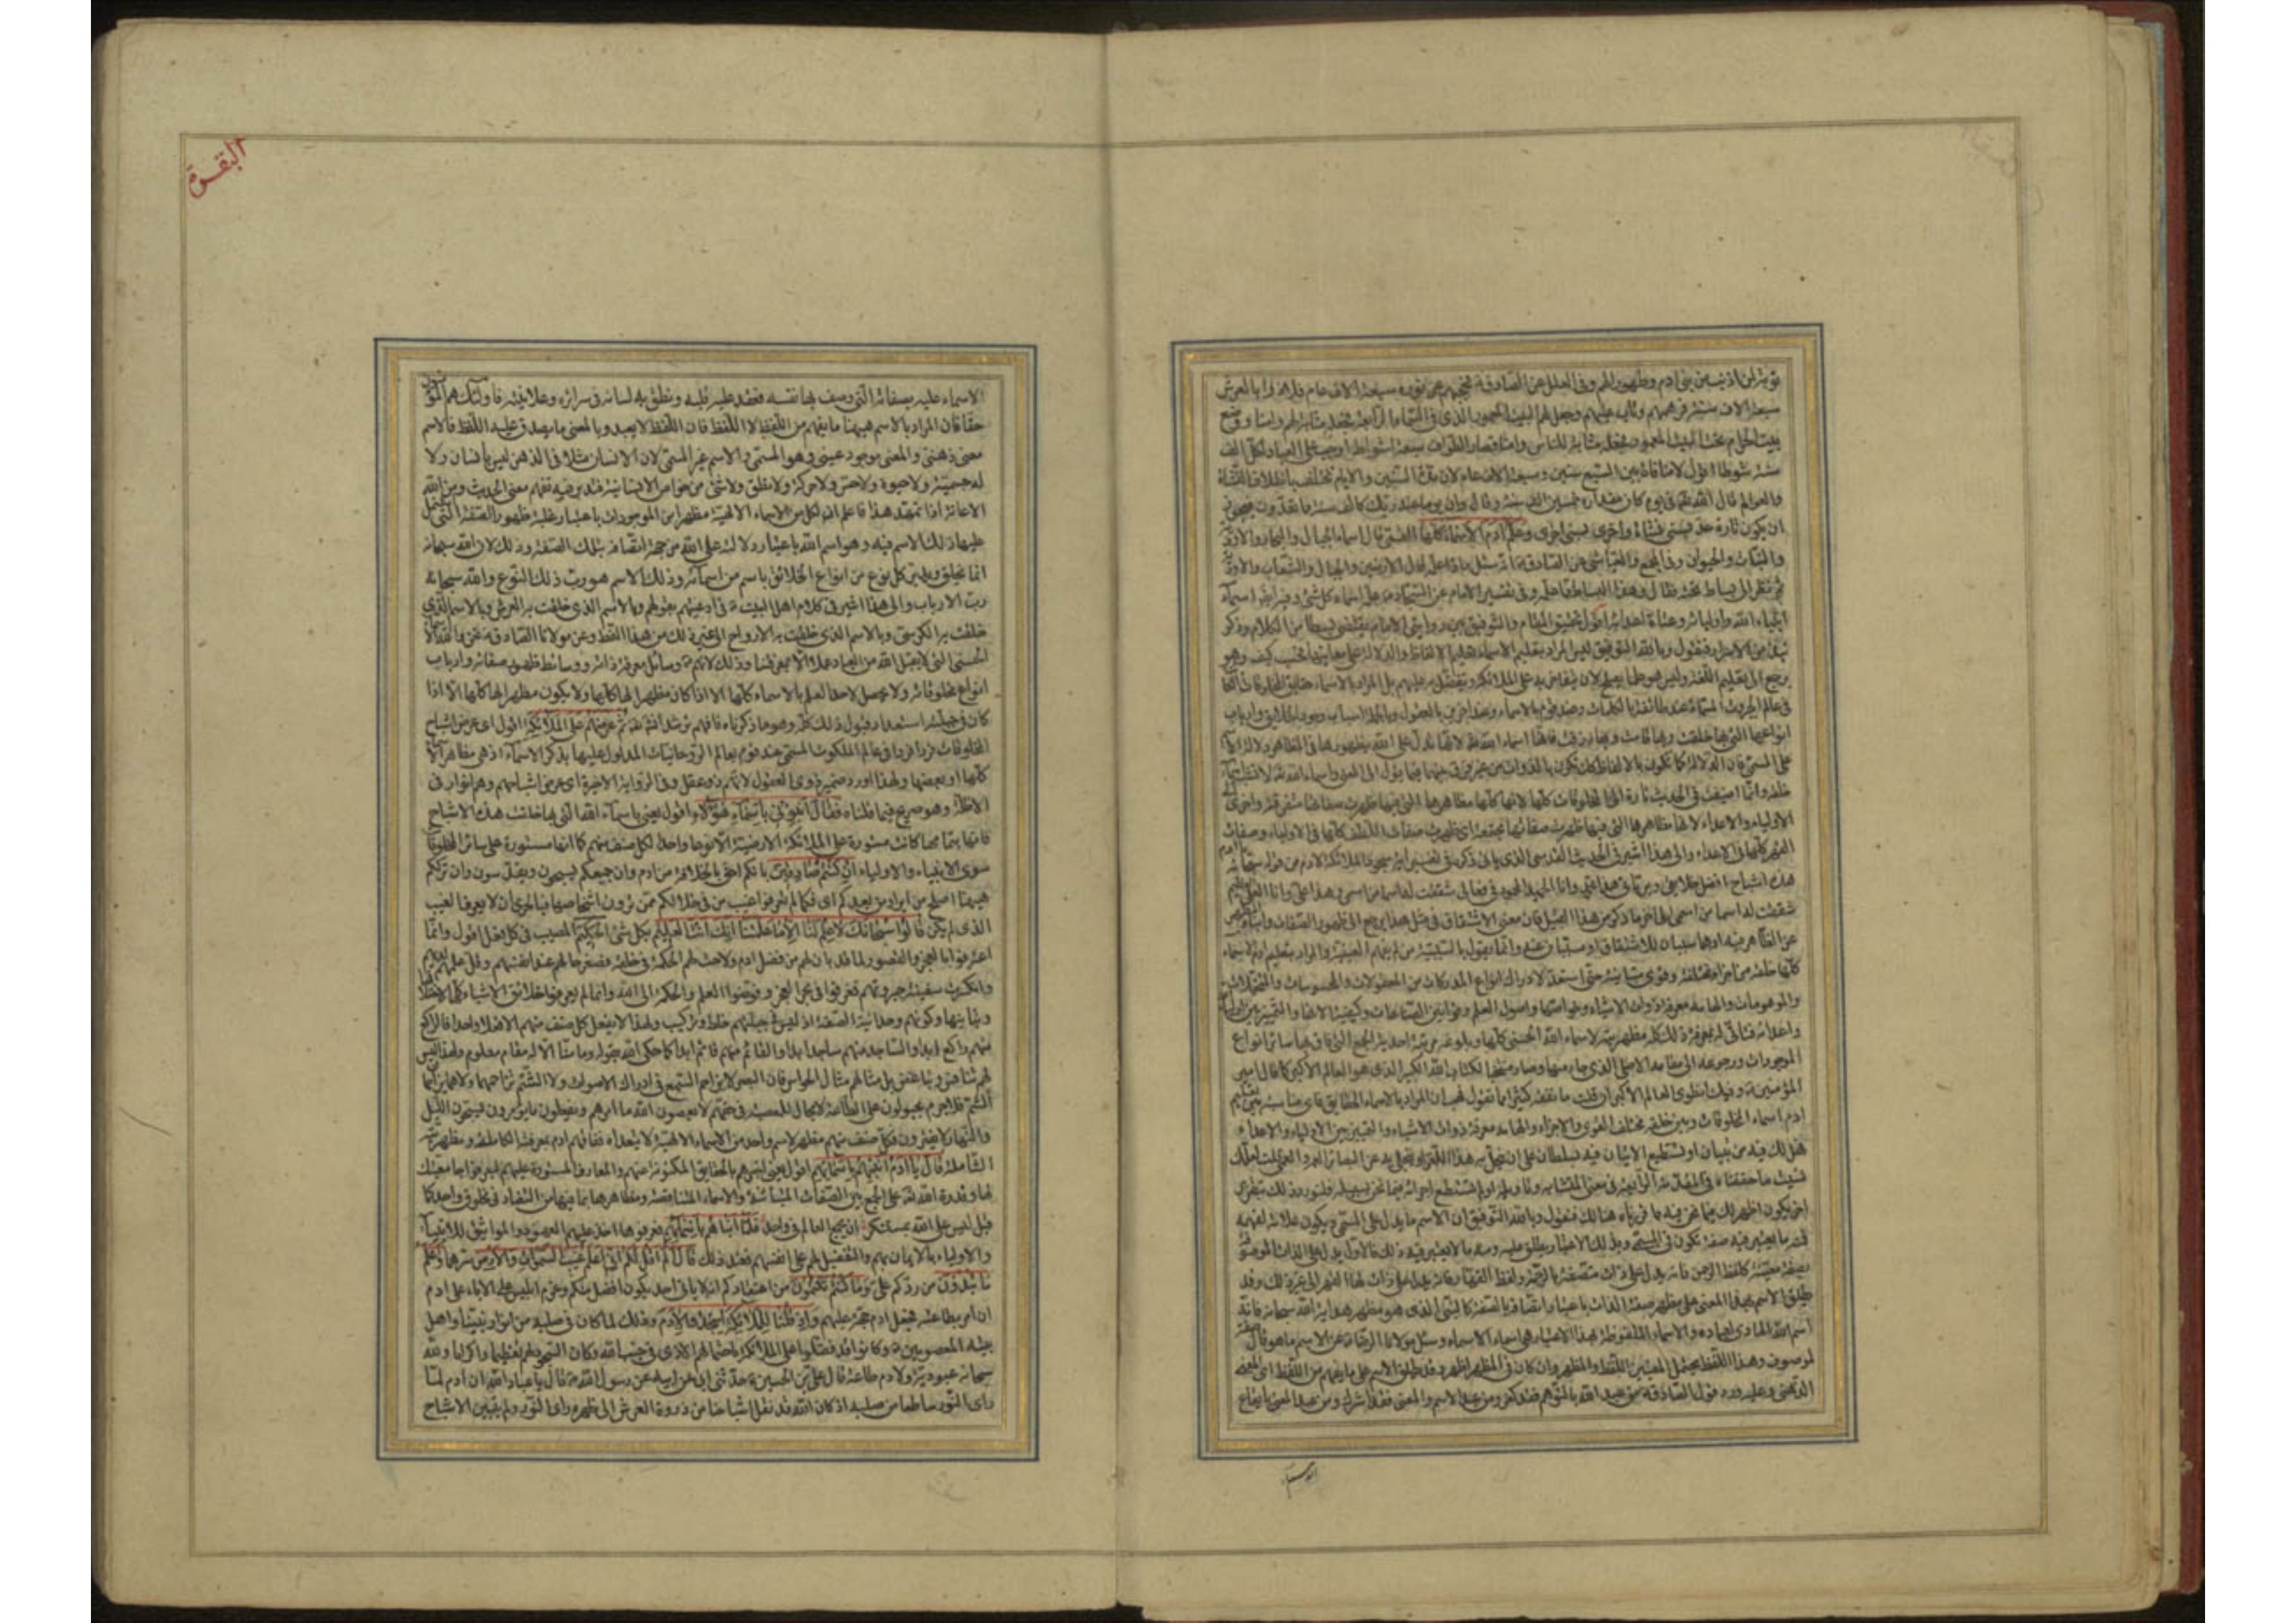 توبة لمن اذنب من بنى ادم وطهورا لهم وفى العلل عن الصادق فحجبهم عن نوره سبعة الاف عام فلاذوا بالعرش
سبعة الاف سنة فرحمهم وتاب عليهم وجعل لهم البيت المعمور الذى فى السماء الرابعة فجعله مثابة لهم وامنا ووضع
البيت الحرام تحت البيت المعمور فجعله مثابة للناس وامنا فصار الطواف سبعة اشواط واجبا على العباد لكل الف
سنة شوطا اقول لا منافاة بين السبع سنين وسبعة الاف عام لان مدة السنين والايام تختلف باختلاف النشاة
والعوالم قال الله تعالى فى يوم كان مقداره خمسين الف سنة وقال وان يوما عند ربك كالف سنة مما تعدون فيجوز
ان يكون تارة عد بسنى نشاة واخرى بسنى اخرى وعلم ادم الاسماء كلها القمى قال اسماء الجبال والبحار والاودية
والنبات والحيوان وفى المجمع والعياشى عن الصادق انه سئل ماذا علمه قال الارضين والجبال والشعاب والاودية
ثم نظر الى بساط تحته فقال وهذا البساط مما علمه وفى تفسير الامام عن السجاد علمه اسماء كل شئ وفيه ايضا اسماء
انبياء الله واوليائه وعتاة اعدائه اقول تحقيق المقام والتوفيق بين روايتى الامام يقتضى بسطا من الكلام وذكر
نبذ من الاسرار فنقول وبالله التوفيق ليس المراد بتعليم الاسماء تعليم الالفاظ والدلالة على معانيها فحسب كيف وهو
يرجع الى تعليم اللغة وليس هو علما يصلح لان يتفاخر به على الملائكة ويتفضل به عليهم بل المراد بالاسماء حقايق المخلوقات الكائنة
فى عالم الجبروت المسماة عند طائفة بالكلمات وعند قوم بالاسماء وعند اخرين بالعقول وبالجملة اسباب وجود الخلائق وارباب
انواعها التى بها خلقت وبها قامت وبها رزقت فانها اسماء الله تعالى لانها تدل على الله بظهورها فى المظاهر دلالة الاسم
على المسمى فان الدلالة كما تكون بالالفاظ كذلك تكون بالذوات من غير فرق بينهما فيما يؤل الى المعنى واسماء الله لا تشبه اسماء
خلقه وانما اضيفت فى الحديث تارة الى المخلوقات كلها لانها كلها مظاهرها التى فيها ظهرت صفاتها متفرقة واخرى الى
الاولياء والاعداء لانهما مظاهرها التى فيها ظهرت صفاتها مجتمعة اى ظهرت صفات اللطف كلها فى الاولياء وصفات
القهر كلها فى الاعداء والى هذا اشير فى الحديث القدسى الذى ياتى ذكره فى تفسير اية سجود الملائكة لادم من قوله سبحانه
هذه اشباح افضل خلائقى وبرياتى هذا محمد وانا الحميد المحمود فى فعالى شققت له اسما من اسمى وهذا على وانا العلى العظيم
شققت له اسما من اسمى الى اخر ما ذكر من هذا القبيل فان معنى الاشتقاق فى مثل هذا يرجع الى ظهور الصفات وانباء المظهر
عن الظاهر فيه او هما سببان للاشتقاق او مسببان عنه وانما يقول بالسببية من لم يفهم العينية والمراد بتعليم ادم الاسماء
كلها خلقه من اجزاء مختلفة وقوى متباينة حتى استعد لادراك انواع المدركات من المعقولات والمحسوسات والمتخيلات
والموهومات والهامه معرفة ذوات الاشياء وخواصها واصول العلم وقوانين الصناعات وكيفية الاتها والتمييز بين اولياء الله
واعدائه فتاتى له بمعرفة ذلك كله مظهريته لاسماء الله الحسنى كلها وبلوغه مرتبة احدية الجمع التى فاق بها سائر انواع
الموجودات ورجوعه الى مقامه الاصلى الذى جاء منها وصار منتخبا لكتاب الله الكبير الذى هو العالم الاكبر كما قال امير
المؤمنين وفيك انطوى العالم الاكبر ان قلت ما نفقه كثيرا مما تقول فهب ان المراد بالاسماء الحقايق فاى مناسبة بين تعليم
ادم اسماء المخلوقات وبين خلقه مختلف القوى والاجزاء والهامه معرفة ذوات الاشياء والتمييز بين الاولياء والاعداء
هل لك فيه من تبيان او تستطيع الاتيان فيه بسلطان على ان يجعل به هذا اللغز او يجلى به عن البصائر العمه قلت لعلك
نسيت ما حققناه فى المقدمة الرابعة فى معنى المتشابه وتاويله او لم تستطع اجرائه فيما نحن بسبيله فلنورد ذلك بتقرير
اخر يكون اظهر لك فيما نحن فيه مما قررناه هنالك فنقول وبالله التوفيق ان الاسم ما يدل على المسمى ويكون علامة لفهمه
فمنه ما يعتبر فيه صفة تكون فى المسمى وبذلك الاعتبار يطلق عليه ومنه ما لا يعتبر فيه ذلك فالاول يدل على الذات الموصوفة
بصفة معينة كلفظ الرحمن فانه يدل على ذات متصفة بالرحمة ولفظ القهار فانه يدل على ذات لها القهر الى غير ذلك وقد
يطلق الاسم بهذا المعنى على مظهر صفة الذات باعتبار اتصافه بالصفة كالنبى الذى هو مظهر هداية الله سبحانه فانه
اسم الله الهادى لعباده والاسماء الملفوظة بهذا الاعتبار هى اسماء الاسماء وسئل مولانا الرضا عن الاسم ما هو قال صفة
لموصوف وهذا اللفظ يحتمل المعنيين اللفظ والمظهر وان كان فى المظهر اظهر وقد يطلق الاسم على ما يفهم من اللفظ اى المعنى
الذهنى وعليه ورد قول الصادق من عبد الله بالتوهم فقد كفر ومن عبد الاسم والمعنى فقد اشرك ومن عبد المعنى بايقاع
الاسماء
البقرة
الاسماء عليه بصفاته التى وصف بها نفسه فعقد عليه قلبه ونطق به لسانه فى سرائره وعلانيته فاولئك هم المؤمنون
حقا فان المراد بالاسم هيهنا ما يفهم من اللفظ لا اللفظ فان اللفظ لا يعبد وبالمعنى ما يصدق عليه اللفظ فالاسم
معنى ذهنى والمعنى موجود عينى وهو المسمى والاسم غير المسمى لان الانسان مثلا فى الذهن ليس بانسان ولا
له جسمية ولا حيوة ولا حس ولا حركة ولا نطق ولا شئ من خواص الانسانية فتدبر فيه تفهم معنى الحديث ومن الله
الاعانة اذا تمهد هذا فاعلم ان لكل من الاسماء الالهية مظهرا من الموجودات باعتبار غلبة ظهور الصفة التى اشتمل
عليها ذلك الاسم فيه وهو اسم الله باعتبار دلالته على الله من جهة اتصافه بتلك الصفة وذلك لان الله سبحانه
انما يخلق ويدبر كل نوع من انواع الخلائق باسم من اسمائه وذلك الاسم هو رب ذلك النوع والله سبحانه
رب الارباب والى هذا اشير فى كلام اهل البيت فى ادعيتهم بقولهم وبالاسم الذى خلقت به العرش وبالاسم الذى
خلقت به الكرسى وبالاسم الذى خلقت به الارواح الى غير ذلك من هذا النمط وعن مولانا الصادق نحن والله الاسماء
الحسنى التى لا يقبل الله من العباد عملا الا بمعرفتنا وذلك لانهم وسائل معرفة ذاته ووسائط ظهور صفاته وارباب
انواع مخلوقاته ولا يحصل لاحد العلم بالاسماء كلها الا اذا كان مظهرا لها كلها ولا يكون مظهرا لها كلها الا اذا
كان فى جبلته استعداد قبول ذلك كله وهو ما ذكرناه فافهم ترشد انشاء الله ثم عرضهم على الملائكة اقول اى عرض اشباح
المخلوقات فردا فردا فى عالم الملكوت المسمى عند قوم بعالم الروحانيات المدلول عليها بذكر الاسماء اذ هى مظاهر الاسماء
كلها او بعضها ولهذا اورد ضمير ذوى العقول لانهم ذو عقل وفى الرواية الاخيرة اى عرض اشباحهم وهم انوار فى
الاظلة وهو صريح فيما قلناه فقال انبؤنى باسماء هؤلاء اقول يعنى باسماء الله التى بها خلقت هذه الاشباح
فانها بتمامها كانت مستورة على الملائكة الارضية الا نوعا واحدا لكل صنف منهم كما انها مستورة على سائر المخلوقات
سوى الانبياء والاولياء ان كنتم صادقين بانكم احق بالخلافة من ادم وان جميعكم تسبحون وتقدسون وان ترككم
هيهنا اصلح من ايراد من بعدكم اى فكما لم تعرفوا غيب من فى خلالكم ممن ترون اشخاصها فبالحرى ان لا تعرفوا الغيب
الذى لم يكن قالوا سبحانك لا علم لنا الا ما علمتنا انك انت العليم بكل شئ الحكيم المصيب فى كل فعل اقول وانما
اعترفوا بالعجز والقصور لما قد بان لهم من فضل ادم ولاحت لهم الحكمة فى خلقه فصغر حالهم عند انفسهم وقل علمهم لديهم
وانكسرت سفينة جبروتهم فغرقوا فى بحر العجز وفوضوا العلم والحكمة الى الله وانما لم يعرفوا حقائق الاشياء كلها لاختلافها
وتباينها وكونهم وحدانية الصفة اذ ليس فى جبلتهم خلط وتركيب ولهذا لا يفعل كل صنف منهم الا فعلا واحدا فالراكع
منهم راكع ابدا والساجد منهم ساجد ابدا والقائم منهم قائم ابدا كما حكى الله بقوله وما منا الا له مقام معلوم ولهذا ليس
لهم تنافس وتباغض بل مثالهم مثال الحواس فان البصر لا يزاحم السمع فى ادراك الاصوات ولا الشم يزاحمهما ولا هما يزاحمان
الشم فلا جرم مجبولون على الطاعة لا مجال للمعصية فى حقهم لا يعصون الله ما امرهم ويفعلون ما يؤمرون يسبحون الليل
والنهار لا يفترون فكل صنف منهم مظهر لاسم واحد من الاسماء الالهية لا يتعداه ففاقهم ادم بمعرفته الكاملة ومظهريته
الشاملة قال يا ادم انبئهم باسمائهم اقول يعنى اخبرهم بالحقايق المكنونة عنهم والمعارف المستورة عليهم ليعرفوا جامعيتك
لها وقدرة الله تعالى على الجمع بين الصفات المتباينة والاسماء المتناقضة ومظاهرها بما فيها من التضاد فى مخلوق واحد كما
قيل ليس على الله بمستنكر ان يجمع العالم فى واحد فلما انباهم باسمائهم فعرفوها اخذ عليهم العهود والمواثيق للانبياء
والاولياء بالايمان بهم والتفضيل لهم على انفسهم فعند ذلك قال الم اقل لكم انى اعلم غيب السموات والارض سرهما واعلم
ما تبدون من ردكم على وما كنتم تكتمون من اعتقادكم انه لا ياتى احد يكون افضل منكم وعزم ابليس على الاباء على ادم
ان امر بطاعته فجعل ادم حجة عليهم واذ قلنا للملائكة اسجدوا لادم وذلك لما كان فى صلبه من انوار نبينا واهل
بيته المعصومين وكانوا قد فضلوا على الملائكة باحتمالهم الاذى فى جنب الله وكان السجود لهم تعظيما واكراما ولله
سبحانه عبودية ولادم طاعة قال على بن الحسين حدثنى ابى عن ابيه عن رسول الله قال يا عباد الله ان ادم لما
راى النور ساطعا من صلبه اذ كان الله قد نقل اشباحنا من ذروة العرش الى ظهره راى النور ولم يتبين الاشباح